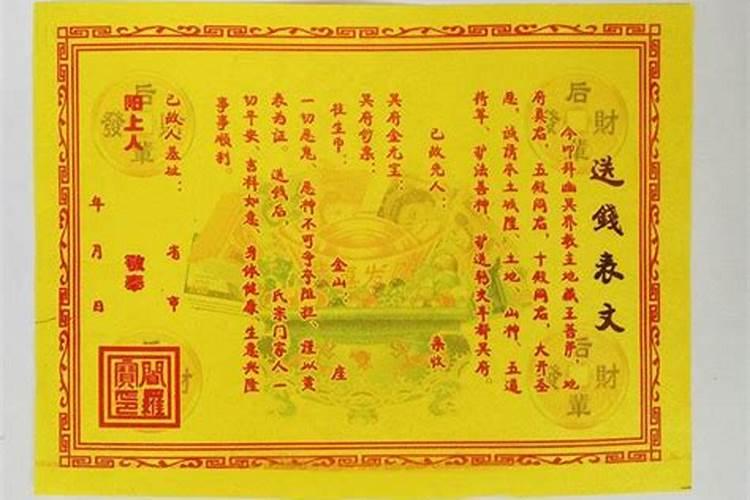 送錢表文
今叩拜幽冥界教主地藏王菩薩，地
府真君，五殿阎君，十殿阎君，大开圣
恩，诚请本土城隍、土地、山神、五道
将军、护法善神，护送钱文车都冥府。
已故先人： 案收
冥府金元宝：
冥府钞票：
往生币： 金山： 座
一切恶鬼、恶神不可争夺阻拦，谨以黄
表为证。送钱后， 氏宗门家人一
切平安、吉祥如意、身体健康、生意兴隆
事事顺利。
已故人墓址： 省 市
阳上人 敬奉
年 月 日
閻羅
寶印
后
財
發
輩
后
發
輩
后
財
輩
财